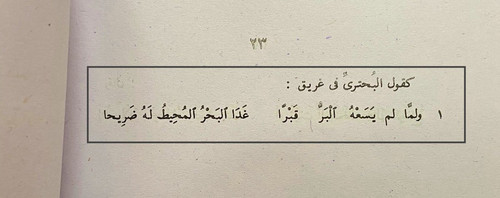 ٢٣
كقول البُحترىِّ فى غريق :
١ ولمَّا لم يَسَعْهُ ٱلْبَرُّ قَبْرًا غَدَا ٱلبَحْرُ ٱلمُحِيطُ لَهُ ضَرِيحا